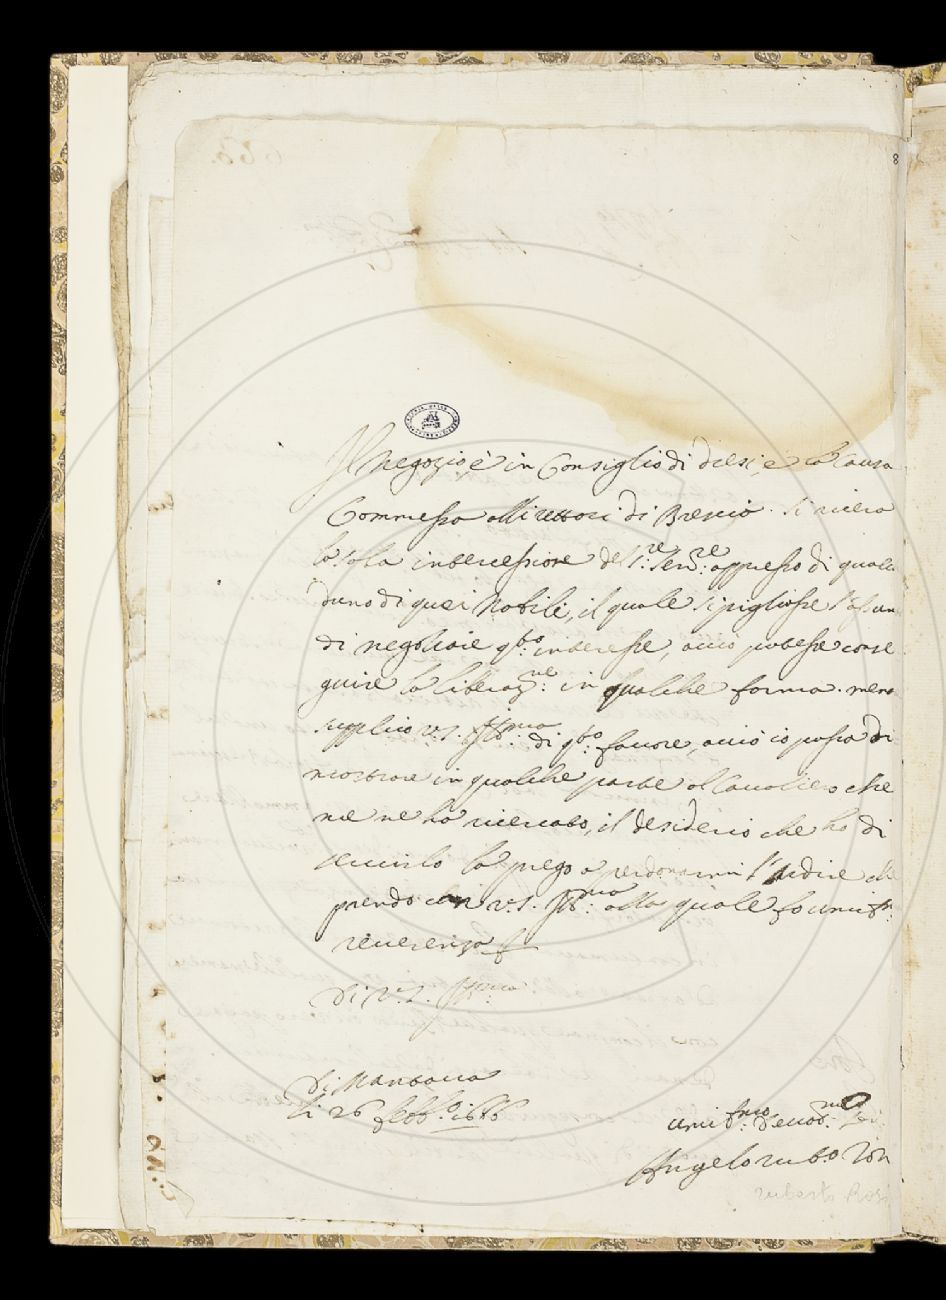 8
Il negozio è in Consiglio di dieci, e la causa
Commessa alli rettori di Brescia. Si ricerca
la sola intercessione del S.re Ser.re appresso di qualc
duno di quei Nobili, il quale si pigliasse l'assun
di negotiare q.to interesse, acciò potesse conse
guire la liberaz.ne in qualche forma. mentre
supplico V.S. Ill.ma di q.to favore, acciò io possa di
mostrare in qualche parte al Cavaliero che
me ne ha ricercato, il desiderio che ho di
servirlo la prego a perdonarmi l'ardire che
prendo con V.S. Ill.ma alla quale fo umiliss.
reverenza
Di V.S. Ill.ma
Di Mantova
li 26 febb.o 1686
umiliss.mo devot.mo
Angelo rub.o
ruberto Rosi